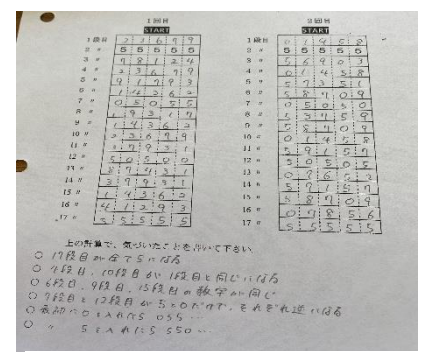 1回目
START
1段目 2 3 6 7 9
2 〃 5 5 5 5 5
3 〃 7 8 1 2 4
4 〃 2 3 6 7 9
5 〃 9 1 7 9 3
6 〃 1 4 3 6 2
7 〃 0 5 0 5 5
8 〃 1 9 3 1 7
9 〃 1 4 3 6 2
10 〃 2 3 6 7 9
11 〃 3 7 9 3 1
12 〃 5 0 5 0 0
13 〃 8 7 4 3 1
14 〃 3 7 9 3 1
15 〃 1 4 3 6 2
16 〃 4 1 2 9 3
17 〃 5 5 5 5 5
2回目
START
1段目 0 1 4 5 8
2 〃 5 5 5 5 5
3 〃 5 6 9 0 3
4 〃 0 1 4 5 8
5 〃 5 7 3 5 1
6 〃 5 8 7 0 9
7 〃 0 5 0 5 0
8 〃 5 3 7 5 9
9 〃 5 8 7 0 9
10 〃 0 1 4 5 8
11 〃 5 9 1 5 7
12 〃 5 0 5 0 5
13 〃 0 9 6 5 2
14 〃 5 9 1 5 7
15 〃 5 8 7 0 9
16 〃 0 7 8 5 6
17 〃 5 5 5 5 5
上の計算で、気づいたことを書いて下さい
○ 17段目が全て5になる
○ 4段目、10段目が1段目と同じになる
○ 6段目、9段目、15段目の数字が同じ
○ 7段目と12段目が5と0だけで、それぞれ逆になる
○ 最初に0を入れたら 055…
○ 〃 5を入れたら 550…